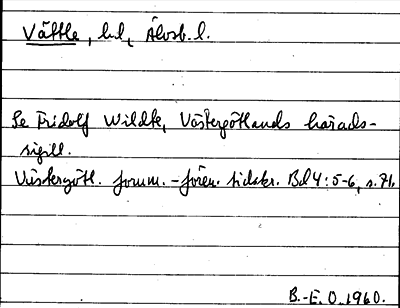 Vättle, hd, Älvsb. l.
Se Fridolf Wildte, Västergötlands härads-
sigill.
Västergötl. fornm.-fören. tidskr. Bd 4:5-6, s. 71.
B.-E. O. 1960.